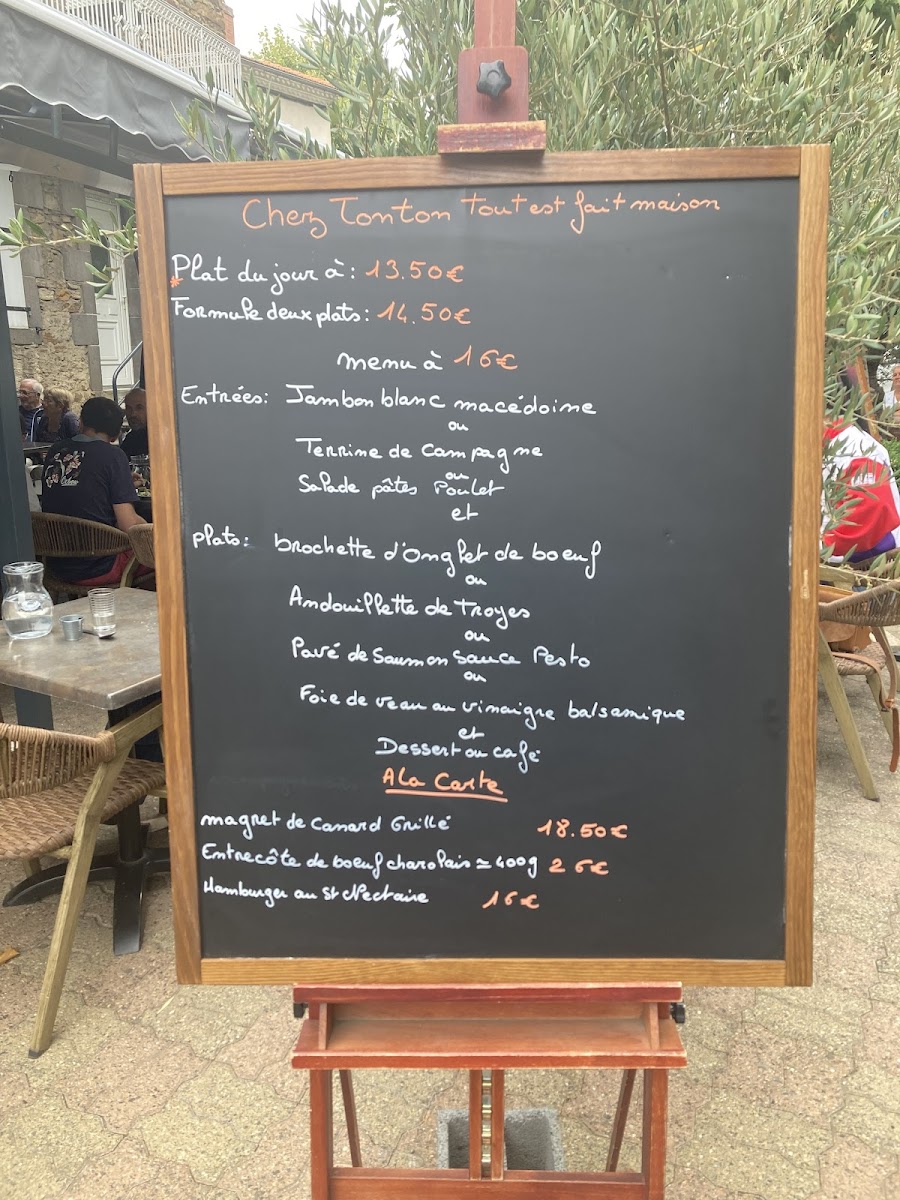 Chez Tonton tout est fait maison
Plat du jour à : 13.50€
* Formule deux plats : 14.50€
menu à 16€
Entrées : Jambon blanc macédoine
ou
Terrine de campagne
ou
Salade pâtes Poulet
et
plats : brochette d'Onglet de boeuf
ou
Andouillette de Troyes
ou
Pavé de Saumon Sauce Pesto
ou
Foie de veau au vinaigre balsamique
et
Dessert ou café
A la Carte
magret de Canard Grillé 18.50€
Entrecôte de boeuf charolais ≃ 400g 26€
Hamburger au St Nectaire 16€